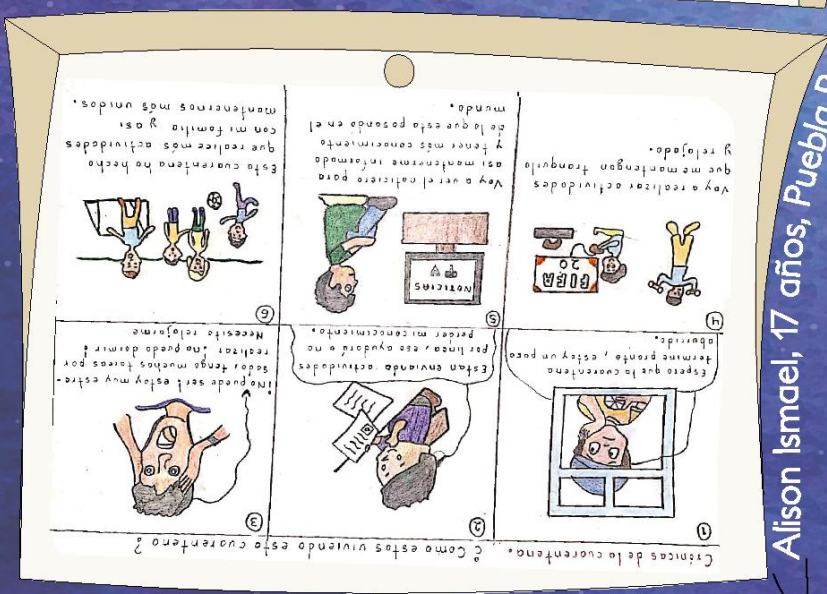 Crónicas de la cuarentena.
¿Como estas viviendo esta cuarentena?
1
Espero que la cuarentena
termine pronto, estoy un poco
aburrido.
2
Estan enviando actividades
por línea, eso ayudará a no
perder mi conocimiento.
3
¡No puede ser! estoy muy estre-
sado, tengo muchas tareas por
realizar ¡no puedo dormir!
Necesito relajarme
4
FIFA
20
Voy a realizar actividades
que me mantengan tranquilo
y relajado.
5
NOTICIAS
TV
Voy a ver el noticiero para
asi mantenerme informado
y tener más conocimiento
de lo que esta pasando en el
mundo.
6
Esta cuarentena ha hecho
que realice más actividades
con mi familia y asi
mantenernos más unidos.
Alison Ismael, 17 años, Puebla